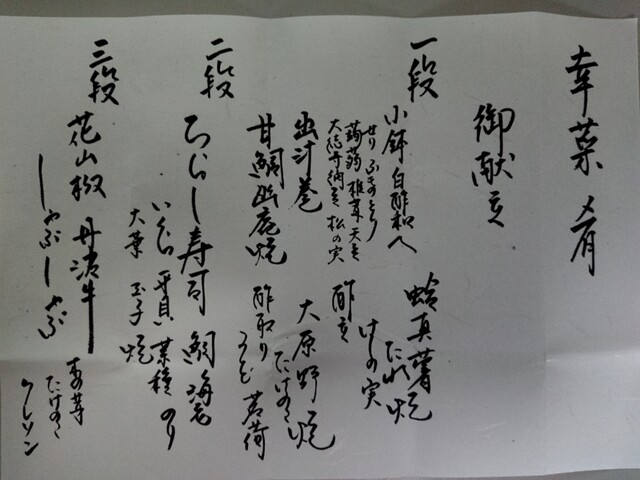 幸菜〆肴
御献立
一段
小鉢 白酢和へ
せり ふきのとう
蒟蒻 椎茸 天豆
大徳寺納豆 松の実
蛤真薯
たれ焼
けしの実
出汁巻
酢立
大原野
たけのこ焼
甘鯛幽庵焼
酢取り
うど 茗荷
二段
ちらし寿司 鯛 海老
いくら 平貝 菜種 のり
大葉 玉子焼
三段
花山椒 丹波牛
しゃぶしゃぶ
たけのこ
クレソン